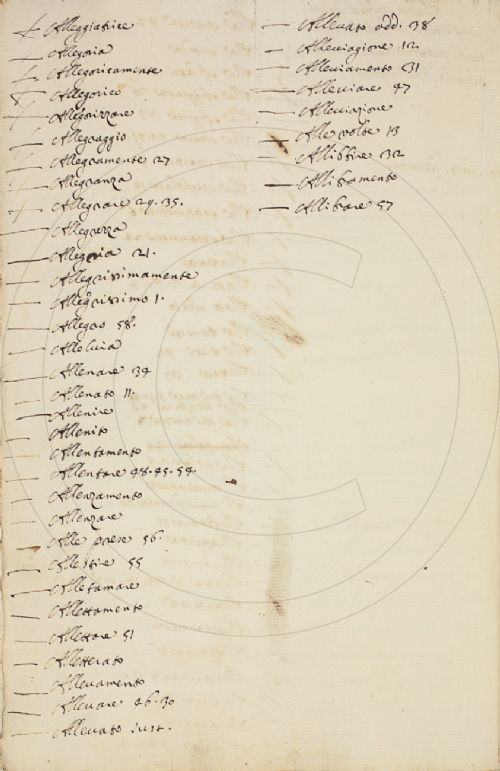 Alleggiatrice
Allegoria
Allegoricamente
Allegorico
Allegorizzare
Allegraggio
Allegramente 27
Allegranza
Allegrare 29. 35.
Allegrezza
Allegria 21.
Allegrissimamente
Allegrissimo 1.
Allegro 58.
Alleluia
Allenare 34
Allenato 11.
Allenire
Allenito
Allentamento
Allentare 48. 45. 54.
Allenzamento
Allenzare
Alle prese 56.
Allestire 55
Alletamare
Allettamento
Allettare 51
Alletterato
Allevamento
Allevare 46. 30
Allevato sust.
Allevato add. 38
Alleviagione 12.
Alleviamento 31
Alleviare 47
Alleviazione
Alle volte 13
Allibbire 32
Allibramento
Allibrare 57